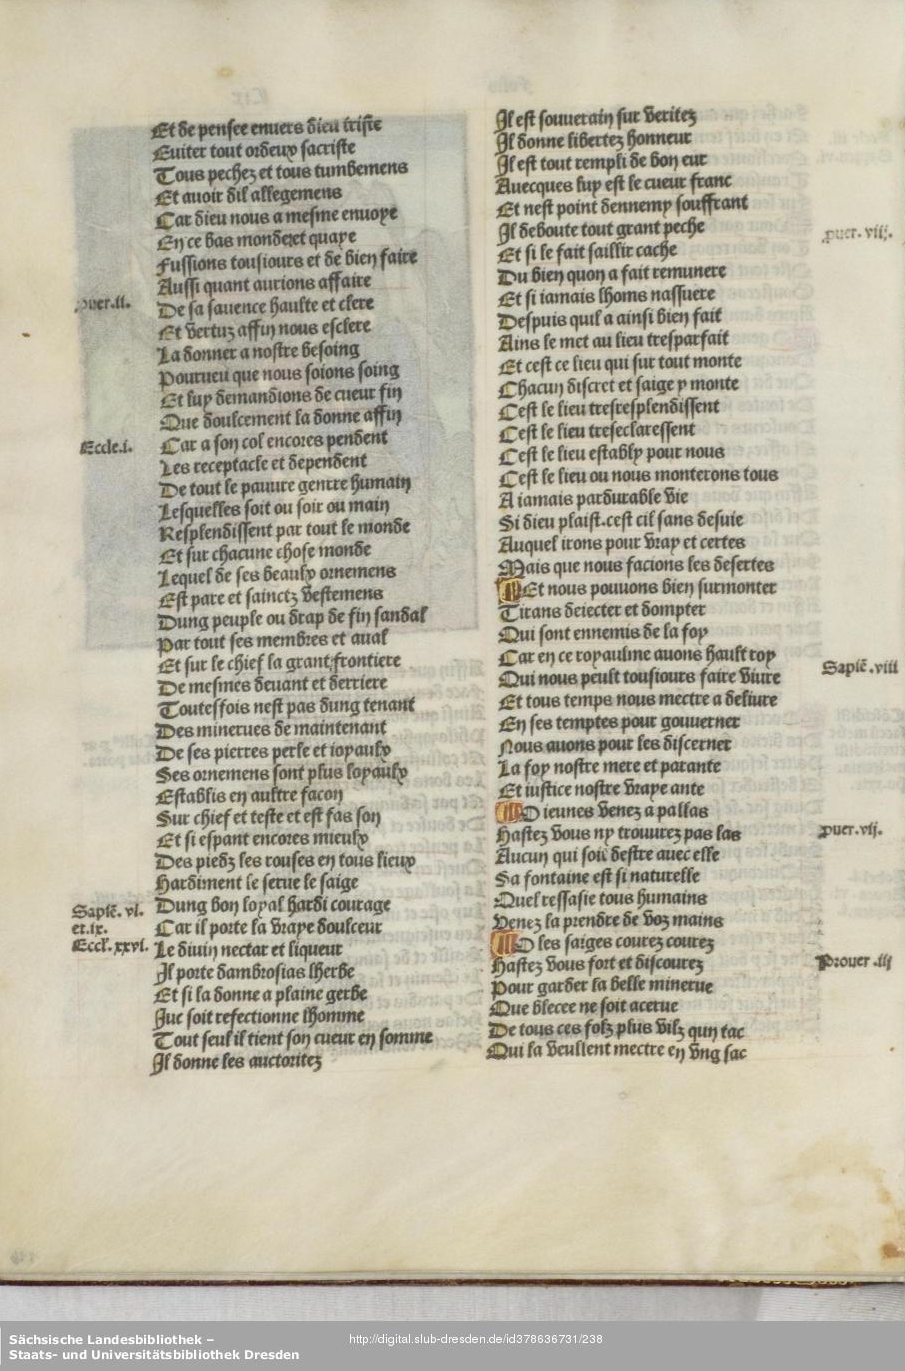 Et de pensee enuers dieu triste
Euiter tout ordeux sacriste
Tous pechez et tous tumbemens
Et auoir dil allegemens
Car dieu nous a mesme enuoye
En ce bas monde et quaye
Fussions tousiours et de bien faire
Aussi quant aurions affaire
puer.ii.
De sa sauence haulte et clere
Et vertuz affin nous esclere
La donner a nostre besoing
Pourueu que nous soions soing
Et luy demandions de cueur fin
Que doulcement la donne affin
Eccle.i.
Car a son col encores pendent
Les receptacle et dependent
De tout le pauure genre humain
Lesquelles soit ou soir ou main
Resplendissent par tout le monde
Et sur chacune chose monde
Lequel de ses beaulx ornemens
Est pare et sainctz vestemens
Dung peuple ou drap de fin sandal
Par tout ses membres et aual
Et sur le chief la grant frontiere
De mesmes deuant et derriere
Toutesfois nest pas dung tenant
Des minerues de maintenant
De ses pierres perle et ioyaulx
Ses ornemens sont plus loyaulx
Establis en aultre facon
Sur chief et teste et est fas son
Et si espant encores mieulx
Des piedz les rouses en tous lieux
Hardiment le serue le saige
Sapiē.vi.
et.ix.
Dung bon loyal hardi courage
Car il porte la vraye doulceur
Eccl'.xxvi.
Le diuin nectar et liqueur
Il porte dambrosias lherbe
Et si la donne a plaine gerbe
Iuc soit refectionne lhomme
Tout seul il tient son cueur en somme
Il donne les auctoritez
Il est souuerain sur veritez
Il donne libertez honneur
Il est tout rempli de bon eur
Auecques luy est le cueur franc
Et nest point dennemy souffrant
Il deboute tout grant peche
puer.viij.
Et si le fait saillir cache
Du bien quon a fait remunere
Et si iamais lhoms nassuere
Despuis quil a ainsi bien fait
Ains le met au lieu tresparfait
Et cest ce lieu qui sur tout monte
Chacun discret et saige y monte
Cest le lieu tresresplendissent
Cest le lieu treseclaressent
Cest le lieu estably pour nous
Cest le lieu ou nous monterons tous
A iamais pardurable vie
Si dieu plaist.cest cil sans desuie
Auquel irons pour vray et certes
Mais que nous facions les desertes
Et nous pouuons bien surmonter
Tirans deiecter et dompter
Qui sont ennemis de la foy
Car en ce royaulme auons hault roy
Sapiē.viii
Qui nous peult tousiours faire viure
Et tous temps nous mectre a deliure
En ses temptes pour gouuerner
Nous auons pour les discerner
La foy nostre mere et parante
Et iustice nostre vraye ante
O ieunes venez a pallas
puer.vij.
Hastez vous ny trouurez pas las
Aucun qui soit destre auec elle
Sa fontaine est si naturelle
Quel ressasie tous humains
Venez la prendre de voz mains
O les saiges courez courez
Prouer.iij
Hastez vous fort et discourez
Pour garder la belle minerue
Que blecee ne soit acerue
De tous ces folz plus vilz qun tac
Qui la veullent mectre en vng sac
Sächsische Landesbibliothek –
Staats- und Universitätsbibliothek Dresden
http://digital.slub-dresden.de/id378636731/238